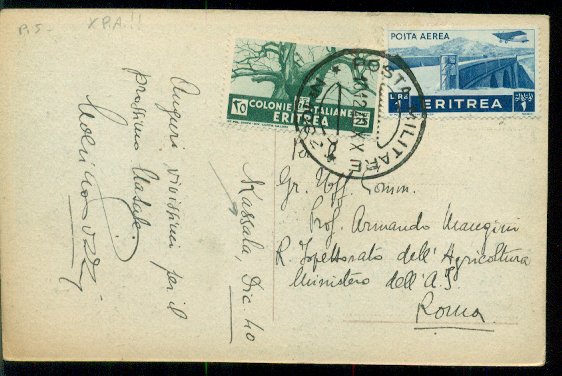 P.S. XPA!!
Auguri vivissimi per il
prossimo Natale.
Kassala, Dic 40
٢٥
COLONIE ITALIANE
ERITREA
25
POSTA AEREA
LIRE
1 ERITREA 1
POSTA MILITARE
Gr. Uff. Comm.
Prof. Armando Mangini
R. Ispettorato dell'Agricoltura
Ministero dell'A.I.
Roma